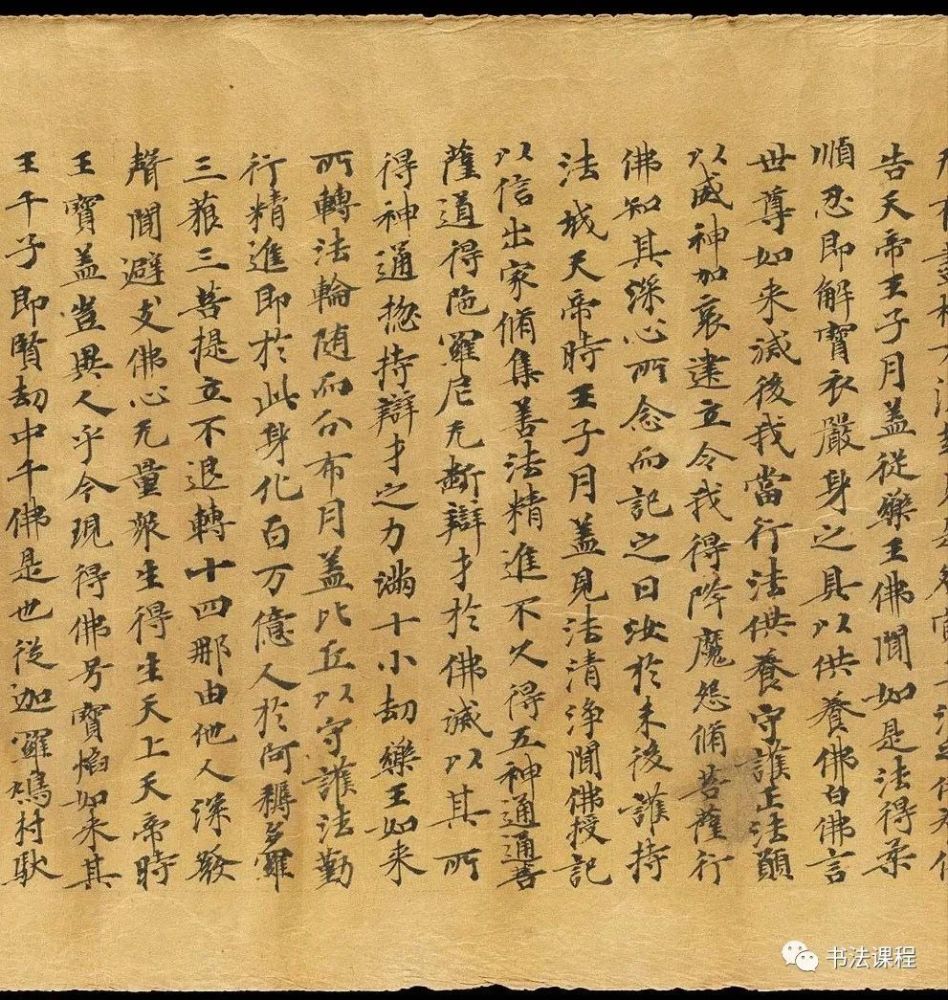 告天帝王子月盖從藥王佛聞如是法得柔
順忍即解寶衣嚴身之具以供養佛白佛言
世尊如来滅後我當行法供養守護正法願
以威神加哀建立令我得降魔怨脩菩薩行
佛知其深心所念而記之曰汝於末後護持
法城天帝時王子月盖見法清浄聞佛授記
以信出家脩集善法精進不久得五神通通菩
薩道得陁羅尼无断辯才於佛滅以其所
得神通揔持辯才之力滿十小劫藥王如来
所轉法輪随而分布月盖比丘以守護法勤
行精進即於此身化百万億人於阿耨多羅
三藐三菩提立不退轉十四那由他人深發
聲聞避支佛心无量衆生得生天上天帝時
王寶盖豈異人乎今現得佛号寶焰如来其
王千子即賢劫中千佛是也從迦羅鳩村馱
书法课程